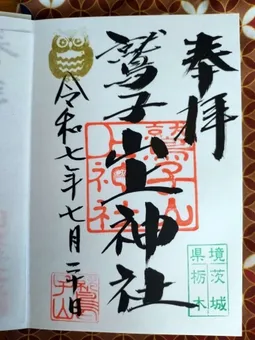 奉拝
鷲子山上神社
令和七年七月二十日
鷲子山
上神社
境茨城
県栃木